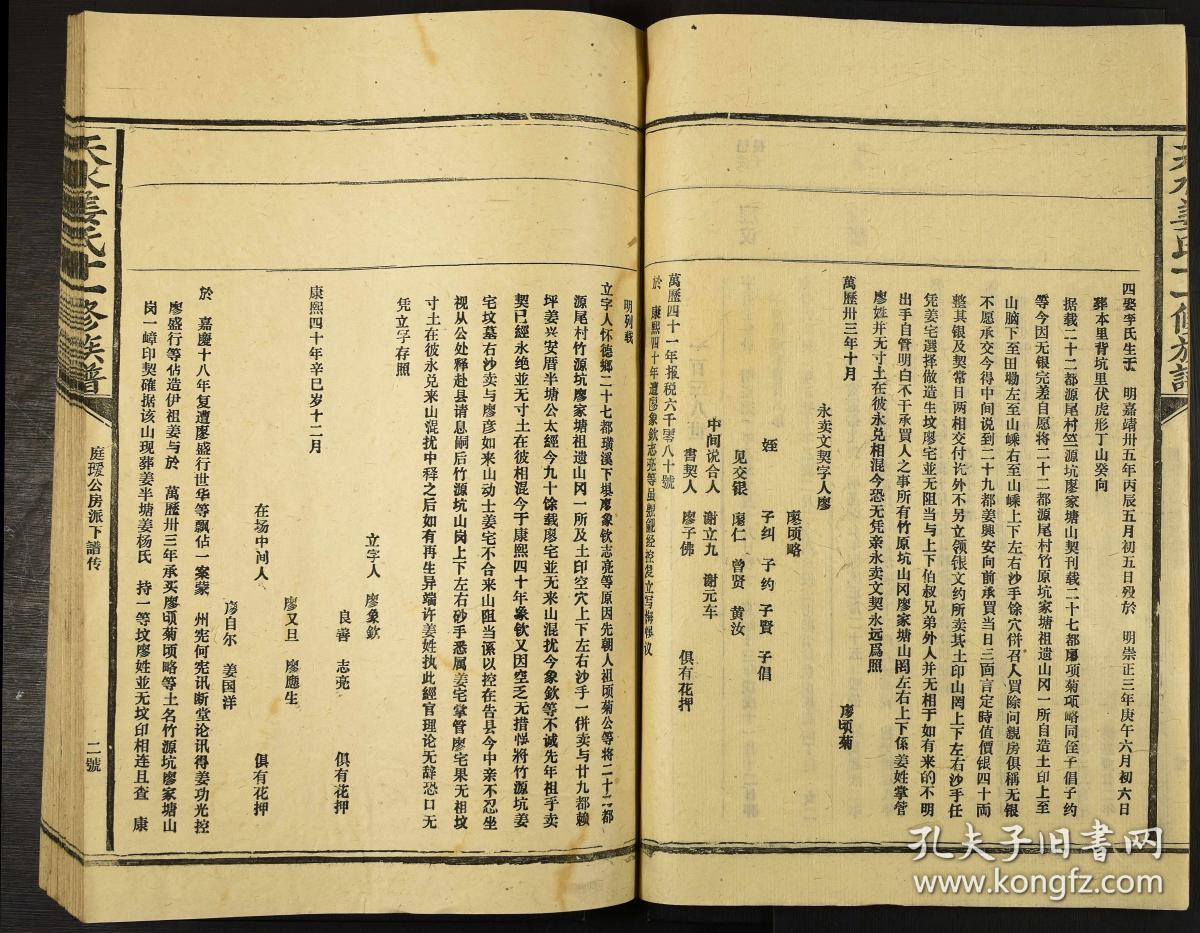 四娶李氏生于 明嘉靖卅五年丙辰五月初五日殁於 明崇正三年庚午六月初六日
葬本里背坑里伏虎形丁山癸向
据载二十二都源尾村竺源坑廖家塘山契刊载二十七都廖项菊项略同侄子倡子约
等今因无银完差自愿将二十二都源尾村竹原坑家塘祖遗山冈一所自造土印上至
山脑下至田塅左至山嵊右至山嵊上下左右沙手馀穴併召人買除问親房俱稱无银
不愿承交今得中间说到二十九都姜興安向前承買当日三面言定時值價银四十两
整其银及契常日两相交付讫外不另立领银文约所卖其土印山罔上下左右沙手任
凭姜宅選择做造生坟廖宅並无阻当与上下伯叔兄弟外人并无相于如有来的不明
出手自管明白不干承買人之事所有竹原坑山冈廖家塘山罔左右上下係姜姓掌管
廖姓并无寸土在彼永兑相混今恐无凭亲永卖文契永远爲照
萬歷卅三年十月 廖顷菊
永卖文契字人廖
廖顷略
姪 子纠 子约 子賢 子倡
见交银 廖仁 曾賢 黄汝
中间说合人 谢立九 谢元车
書契人 廖子佛 俱有花押
萬歷四十一年报税六千零八十號
於 康熙四十年遭廖象欽志亮等虽觊觎经控是立写悔 议
明列载
立字人怀德鄉二十七都璜溪下埧廖象欽志亮等原因先朝人祖顷菊公等將二十二都
源尾村竹源坑廖家塘祖遗山冈一所及土印空穴上下左右沙手一併卖与廿九都賴
坪姜兴安厝半塘公太經今九十馀载廖宅並无来山混扰今象欽等不诚先年祖手卖
契已經永绝並无寸土在彼相混今于康熙四十年象欽又因空乏无措悮將竹源坑姜
宅坟墓右沙卖与廖彦如来山动士姜宅不合来山阻当係以控在告县今中亲不忍坐
视从公处释赴县请息嗣后竹源坑山岗上下左右砂手悉属姜宅掌管廖宅果无相坟
寸土在彼永兑来山混扰中释之后如有再生异端许姜姓执此經官理论无辞恐口无
凭立字存照
康熙四十年辛巳岁十二月
立字人 廖象欽
良善 志亮 俱有花押
廖又旦 廖應生
在场中间人
廖自尔 姜国洋 俱有花押
於 嘉慶十八年复遭廖盛行世华等飘佔一案蒙 州宪何宪讯断堂论讯得姜功光控
廖盛行等佔造伊祖姜与於 萬歷卅三年承买廖顷菊顷略等土名竹源坑廖家塘山
岗一嶂印契確据该山现葬姜半塘姜杨氏 持一等坟廖姓並无坟印相连且查 康
天水姜氏十一修族譜
庭瑷公房派下譜传
二號
孔夫子旧书网
www.kongfz.com